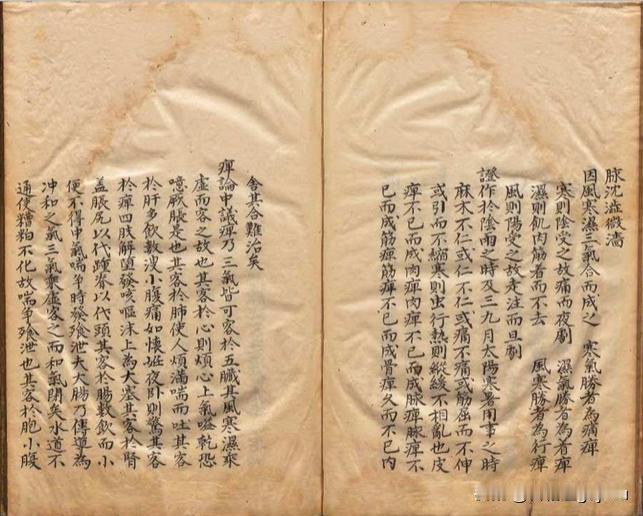 脉沉澁微濇
因風寒濕三氣合而成之　寒氣勝者為痛痺
寒則陰受之故痛而夜劇　濕氣勝者為着痺
濕則肌肉筋着而不去　風寒勝者為行痺
風則陽受之故走注而旦劇
證作於陰雨之時及三九月太陽寒暑用事之時
麻木不仁或仁不仁或痛不痛或筋屈而不伸
或引而不縮寒則虫行熱則縱緩不相亂也皮
痺不已而成肉痺肉痺不已而成脉痺脉痺不
已而成筋痺筋痺不已而成骨痺久而不已內
舍其合難治矣
痺論中議痺乃三氣皆可客於五臟其風寒濕乘
虛而客之故也其客於心則煩心上氣嗌乾恐
噫厥脹是也其客於肺使人煩滿喘而吐其客
於肝多飲數溲小腹痛如懷姙夜卧則驚其客
於痺四肢解墮發咳嘔沫上為大塞其客於腎
蓋脹尻以代踵脊以代頭其客於腸數飲而小
便不得中氣喘爭時發飱泄夫大腸乃傳道為
冲和之氣三氣乘虛客之而和氣閉矣水道不
通使糟粕不化故喘爭飱泄也其客於胞小腹